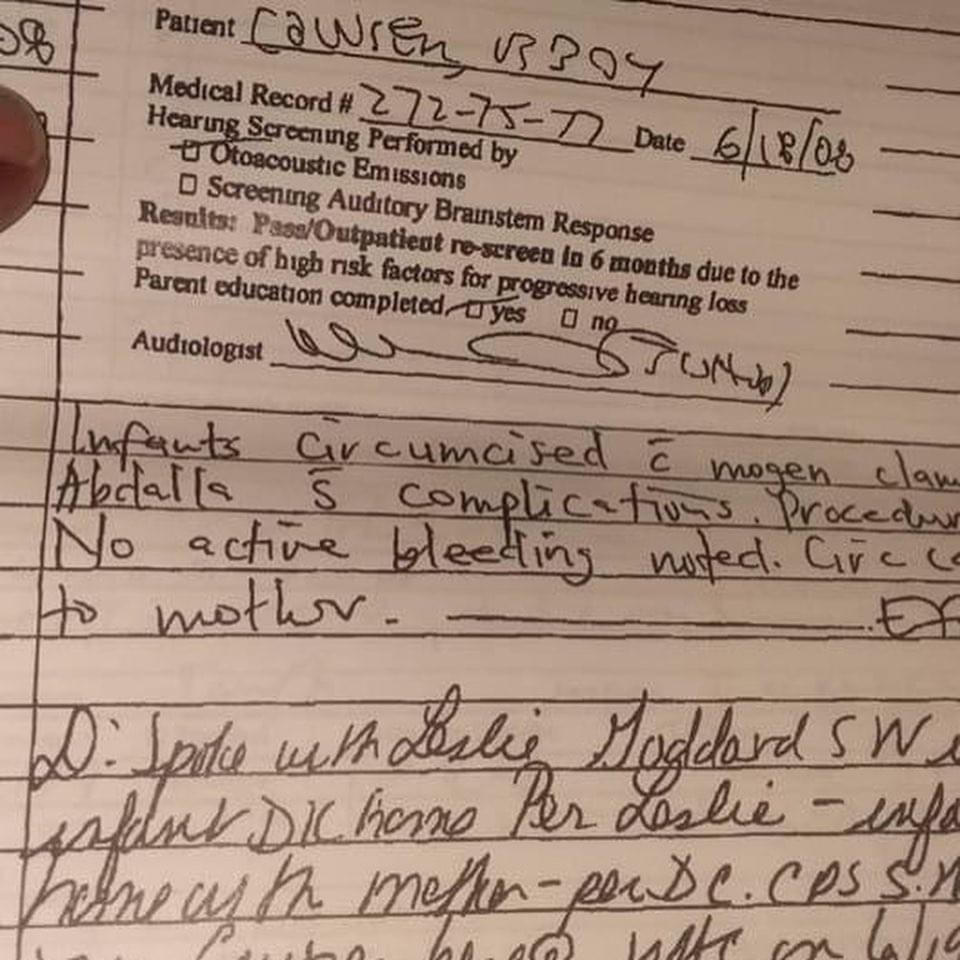 08
Patient Lawsen, BBOY
Medical Record # 272-75-77 Date 6/18/08
Hearing Screening Performed by
Otoacoustic Emissions
Screening Auditory Brainstem Response
Results: Pass/Outpatient re-screen in 6 months due to the
presence of high risk factors for progressive hearing loss
Parent education completed yes no
Audiologist
Infants Circumcised c̄ mogen clam
Abdalla s̄ complications. Procedur
No active bleeding noted. Circ c
to mother.
D: Spoke with Leslie Goddard SW
infant D/C home Per Leslie - infa
home with mother - per DC. CPS S.
on 6/19